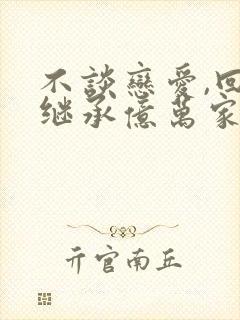 不談戀愛,回
继承億萬家
亓官南丘